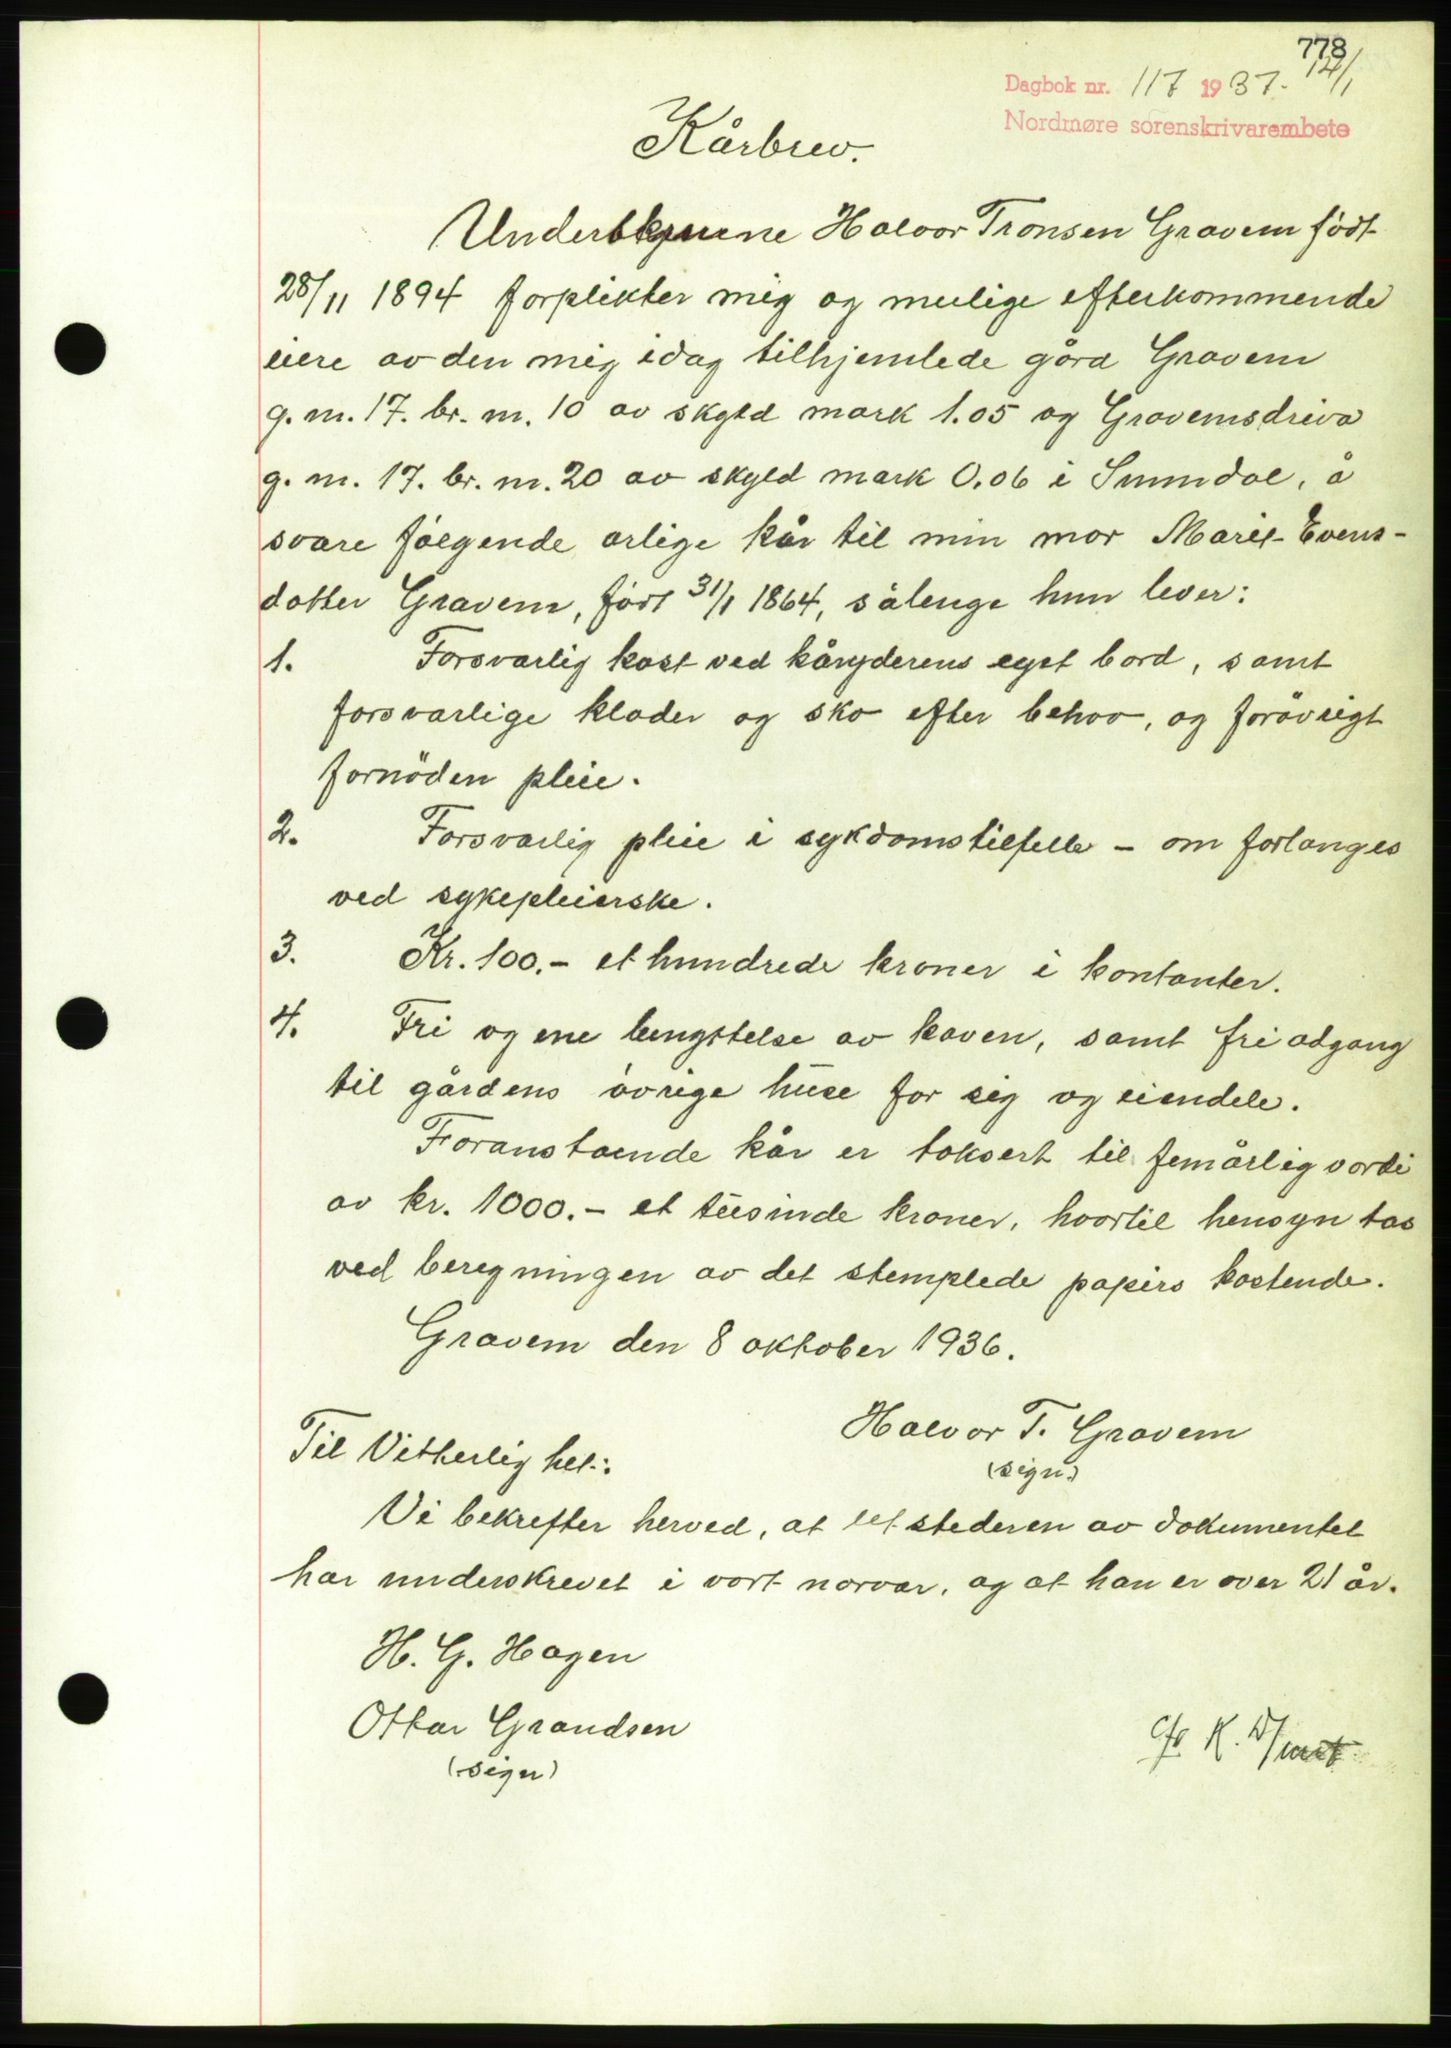 778
Dagbok nr. 117 1937. 14/1
Nordmøre sorenskrivarembete
Kårbrev.
Halvor Tronsen Gravem født
28/11 1894 forplikter mig og mulige efterkommende
eiere av den mig idag tilhjemlede gård Gravem
g. nr. 17. br. nr. 10 av skyld mark 1.05 og Gravemsdriva
g. nr. 17. br. nr. 20 av skyld mark 0.06 i Sunndal, å
svare følgende årlige kår til min mor Marit Evens-
dotter Gravem, født 31/1 1864, sålenge hun lever:
1. Forsvarlig kost ved kåryderens eget bord, samt
forsvarlige klæder og sko efter behov, og forøvrigt
fornöden pleie.
2. Forsvarlig pleie i sykdomstilfelle - om forlanges
ved sykepleierske.
3. Kr. 100.- et hundrede kroner i kontanter.
4. Fri og ene benyttelse av kaven, samt fri adgang
til gårdens övrige huse for sig og eiendele.
Foranstående kår er taksert til femårlig værdi
av kr. 1000.- et tusinde kroner, hvortil hensyn tas
ved beregningen av det stemplede papirs kostende.
Gravem den 8 oktober 1936.
Halvor T. Gravem
(sign)
Til Vitterlighet:
Vi bekrefter herved, at utstederen av dokumentet
har underskrevet i vort nærvær, og at han er over 21 år.
H. G. Hagen
Ottar Grandsen
(sign)
K.